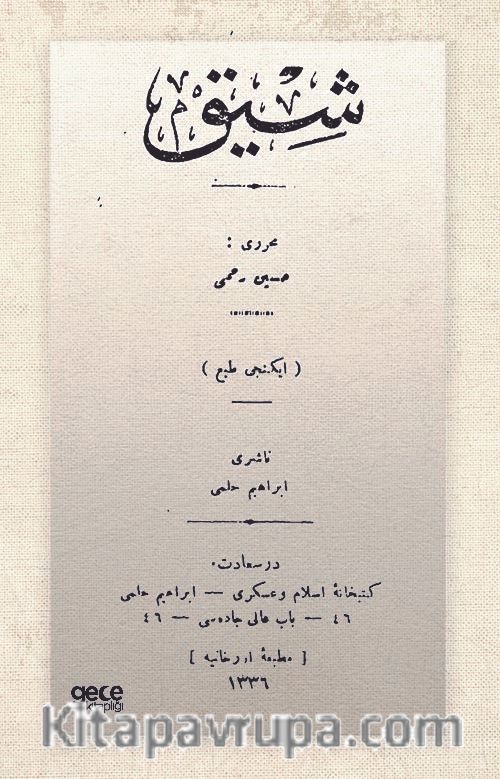 شیق
محرری :
حسین رحمی
( ایکنجی طبع )
ناشری
ابراهیم حلمی
درسعادت.
کتبخانهٔ اسلام و عسکری — ابراهیم حلمی
٤٦ — باب عالی جاده‌سی — ٤٦
[ مطبعهٔ اورخانیه ]
١٣٣٦
gece
kitaplığı
Kitapavrupa.com